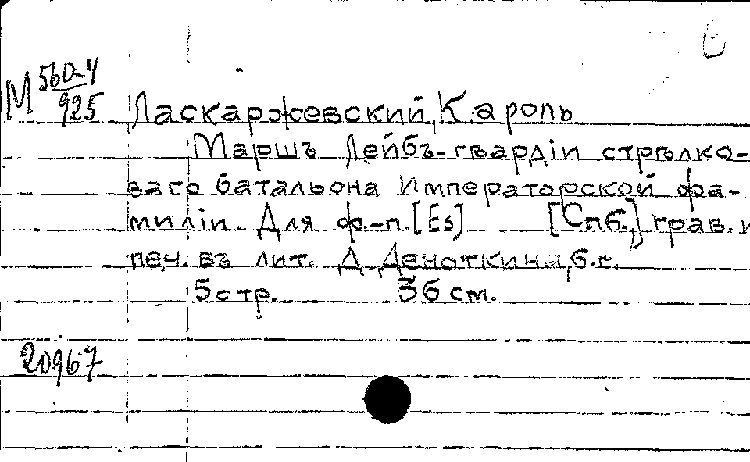 М 560-4
925
Ласкаржевский, Кароль
Маршъ Лейбъ-гвардіи стрѣлко-
ваго батальона Императорской фа-
миліи. Для ф.-п. [Es] [Спб.,] грав. и
печ. въ лит. Д. Деноткина, б.г.
5 стр. 36 см.
20967